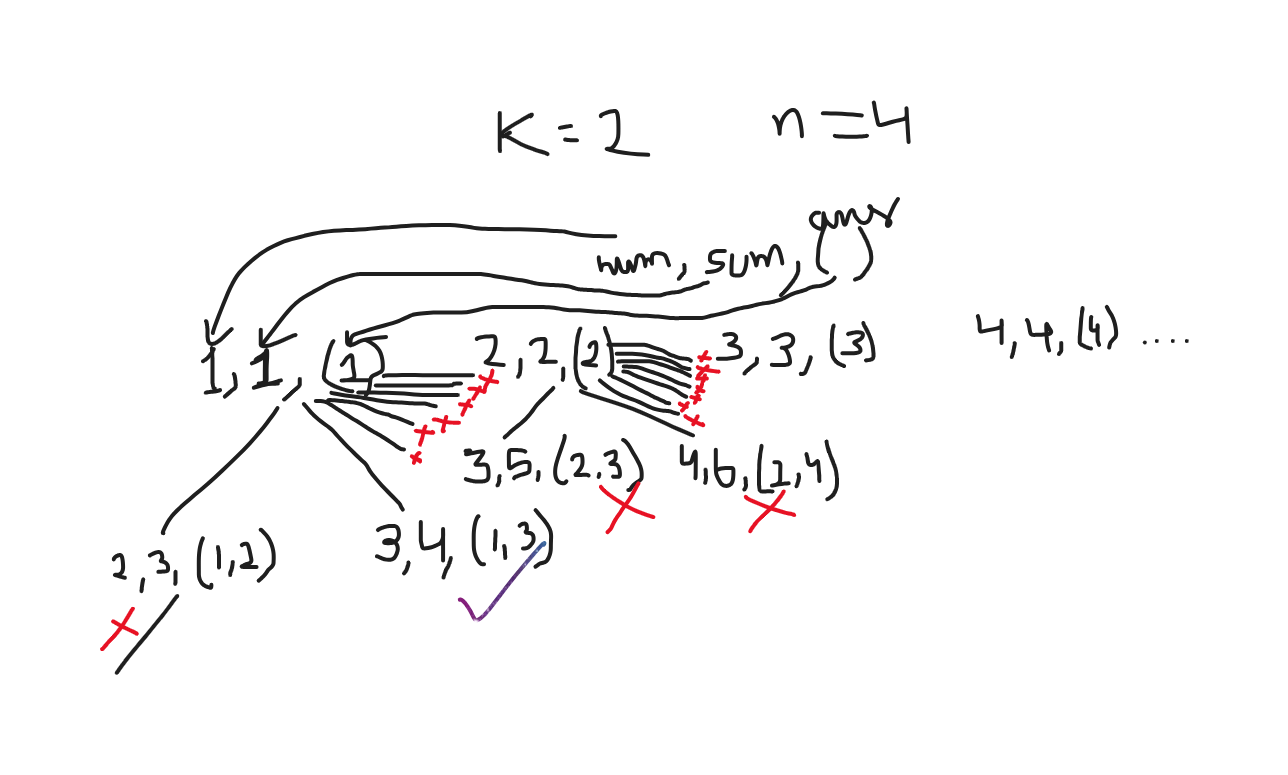 K=2 n=4
ans
num, sum, ( )
1, 1, (1) 2, 2, (2) 3, 3, (3) 4, 4, (4) .....
3, 5, (2,3) 4, 6, (2,4)
2, 3, (1,2) 3, 4, (1,3)